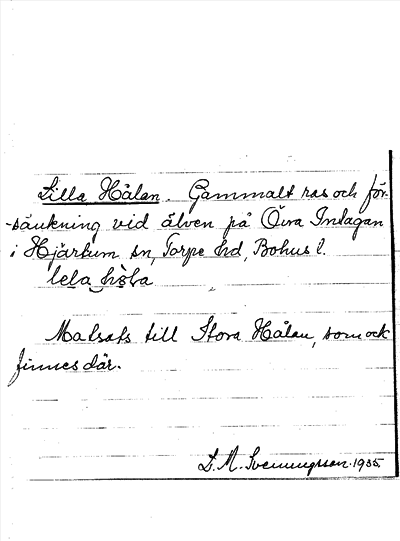 Lilla Hålan. Gammalt ras och för-
-sänkning vid älven på Övra Intagan
i Hjärtum sn, Torpe hd, Bohus l.
lela hòla
Motsats till Stora Hålan, som ock
finnes där.
S. M. Svenungsson. 1935.